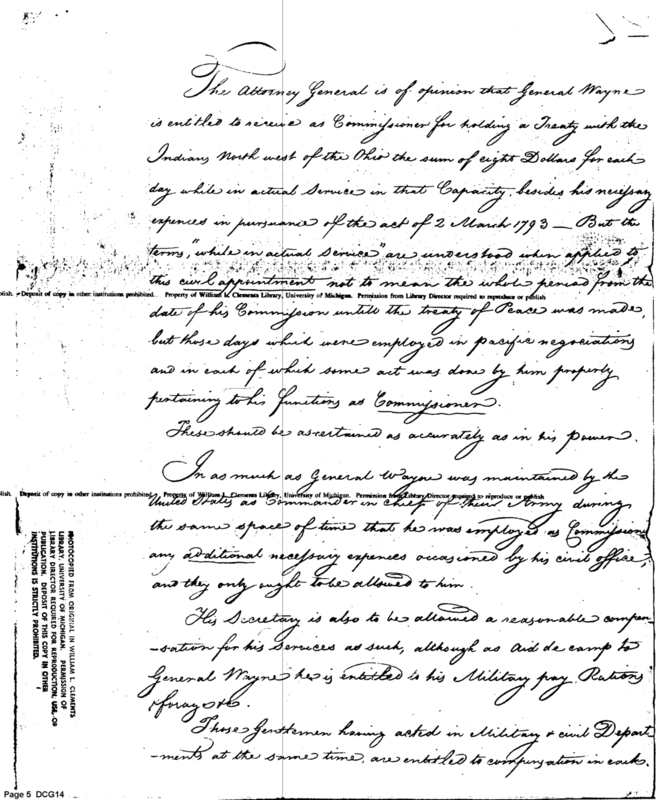 The Attorney General is of opinion that General Wayne
is entitled to receive as Commissioner for holding a Treaty with the
Indians North west of the Ohio the sum of eight Dollars for each
day while in actual Service in that Capacity, besides his necessary
expences in pursuance of the act of 2 March 1793 — But the
terms, "while in actual Service" are understood when applied to
this civil appointment not to mean the whole period from the
lish. Deposit of copy in other institutions prohibited. Property of William L. Clements Library, University of Michigan. Permission from Library Director required to reproduce or publish
date of his Commission untill the treaty of Peace was made,
but those days which were employed in pacific negociations
and in each of which some act was done by him properly
pertaining to his functions as Commissioner.
These should be ascertained as accurately as in his power.
In as much as General Wayne was maintained by the
lish. Deposit of copy in other institutions prohibited. Property of William L. Clements Library, University of Michigan. Permission from Library Director required to reproduce or publish
United States as Commander in chief of their Army during
the same space of time that he was employed as Commissioner
any additional necessary expences occasioned by his civil office,
and they only ought to be allowed to him.
His Secretary is also to be allowed a reasonable compen-
-sation for his Services as such, although as Aid de camp to
General Wayne he is entitled to his Military pay Rations
forage &c.
Those Gentlemen having acted in Military & civil Depart-
-ments at the same time, are entitled to compensation in each.
PHOTOCOPIED FROM ORIGINAL IN WILLIAM L. CLEMENTS
LIBRARY, UNIVERSITY OF MICHIGAN. PERMISSION OF
LIBRARY DIRECTOR REQUIRED FOR REPRODUCTION, USE, OR
PUBLICATION. DEPOSIT OF THIS COPY IN OTHER
INSTITUTIONS IS STRICTLY PROHIBITED.
Page 5 DCG14